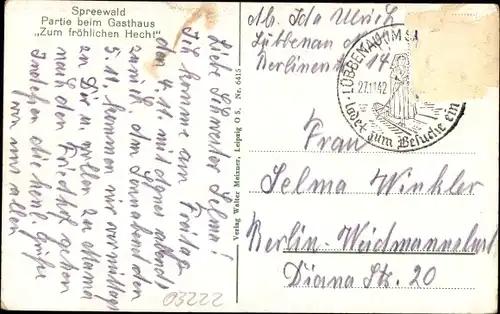 Spreewald
Partie beim Gasthaus
„Zum fröhlichen Hecht"
Liebe Schwester Selma!
Ich komme am Freitag
den 4.12. mit Agnes abends
zurück. Am Sonnabend den
5. 12. kommen wir vormittags
zu Dir u. wollen zu Mama
nach dem Friedhof gehen
Inzwischen die herzl. Grüße
von uns allen
03222
Verlag Walter Meixner, Leipzig O 5, Nr. 6415
Ida Ulrich
Lübbenau
Berlinerstr. 14
LÜBBENAU IM
27.11.42
ladet zum Besuche ein
Frau
Selma Winkler
Berlin-Weidmannslust
Diana Str. 20